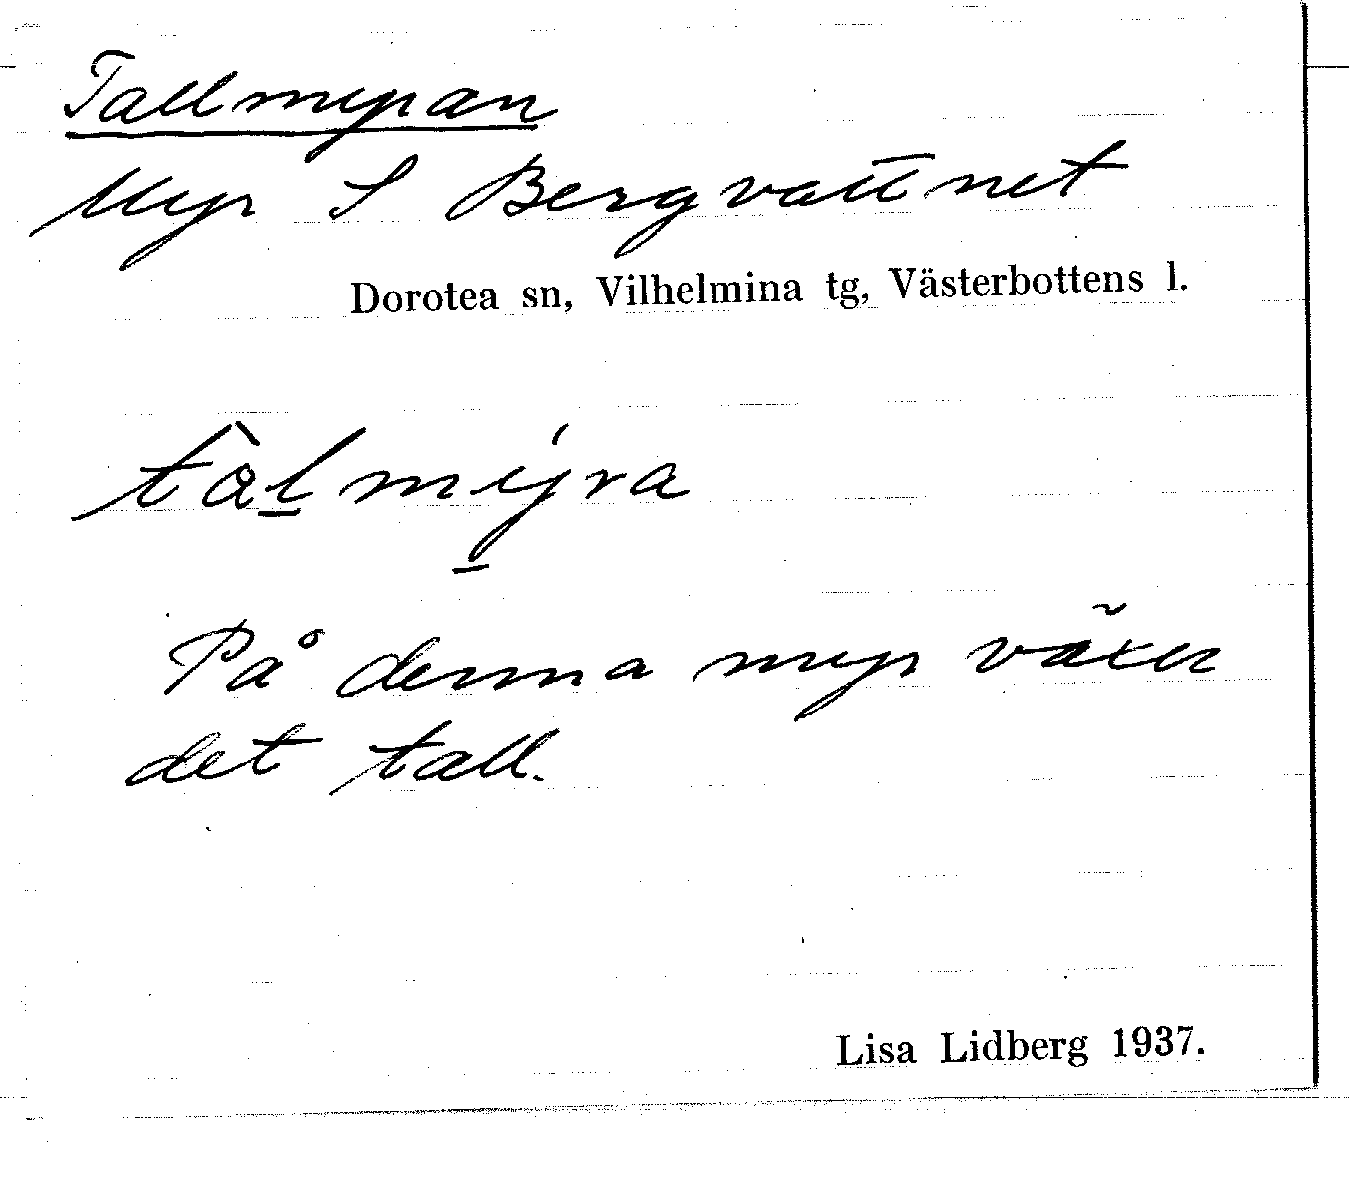 Tallmyran
Myr S Bergvattnet
Dorotea sn, Vilhelmina tg, Västerbottens l.
tàl̲mýra
På denna myr växer
det tall.
Lisa Lidberg 1937.